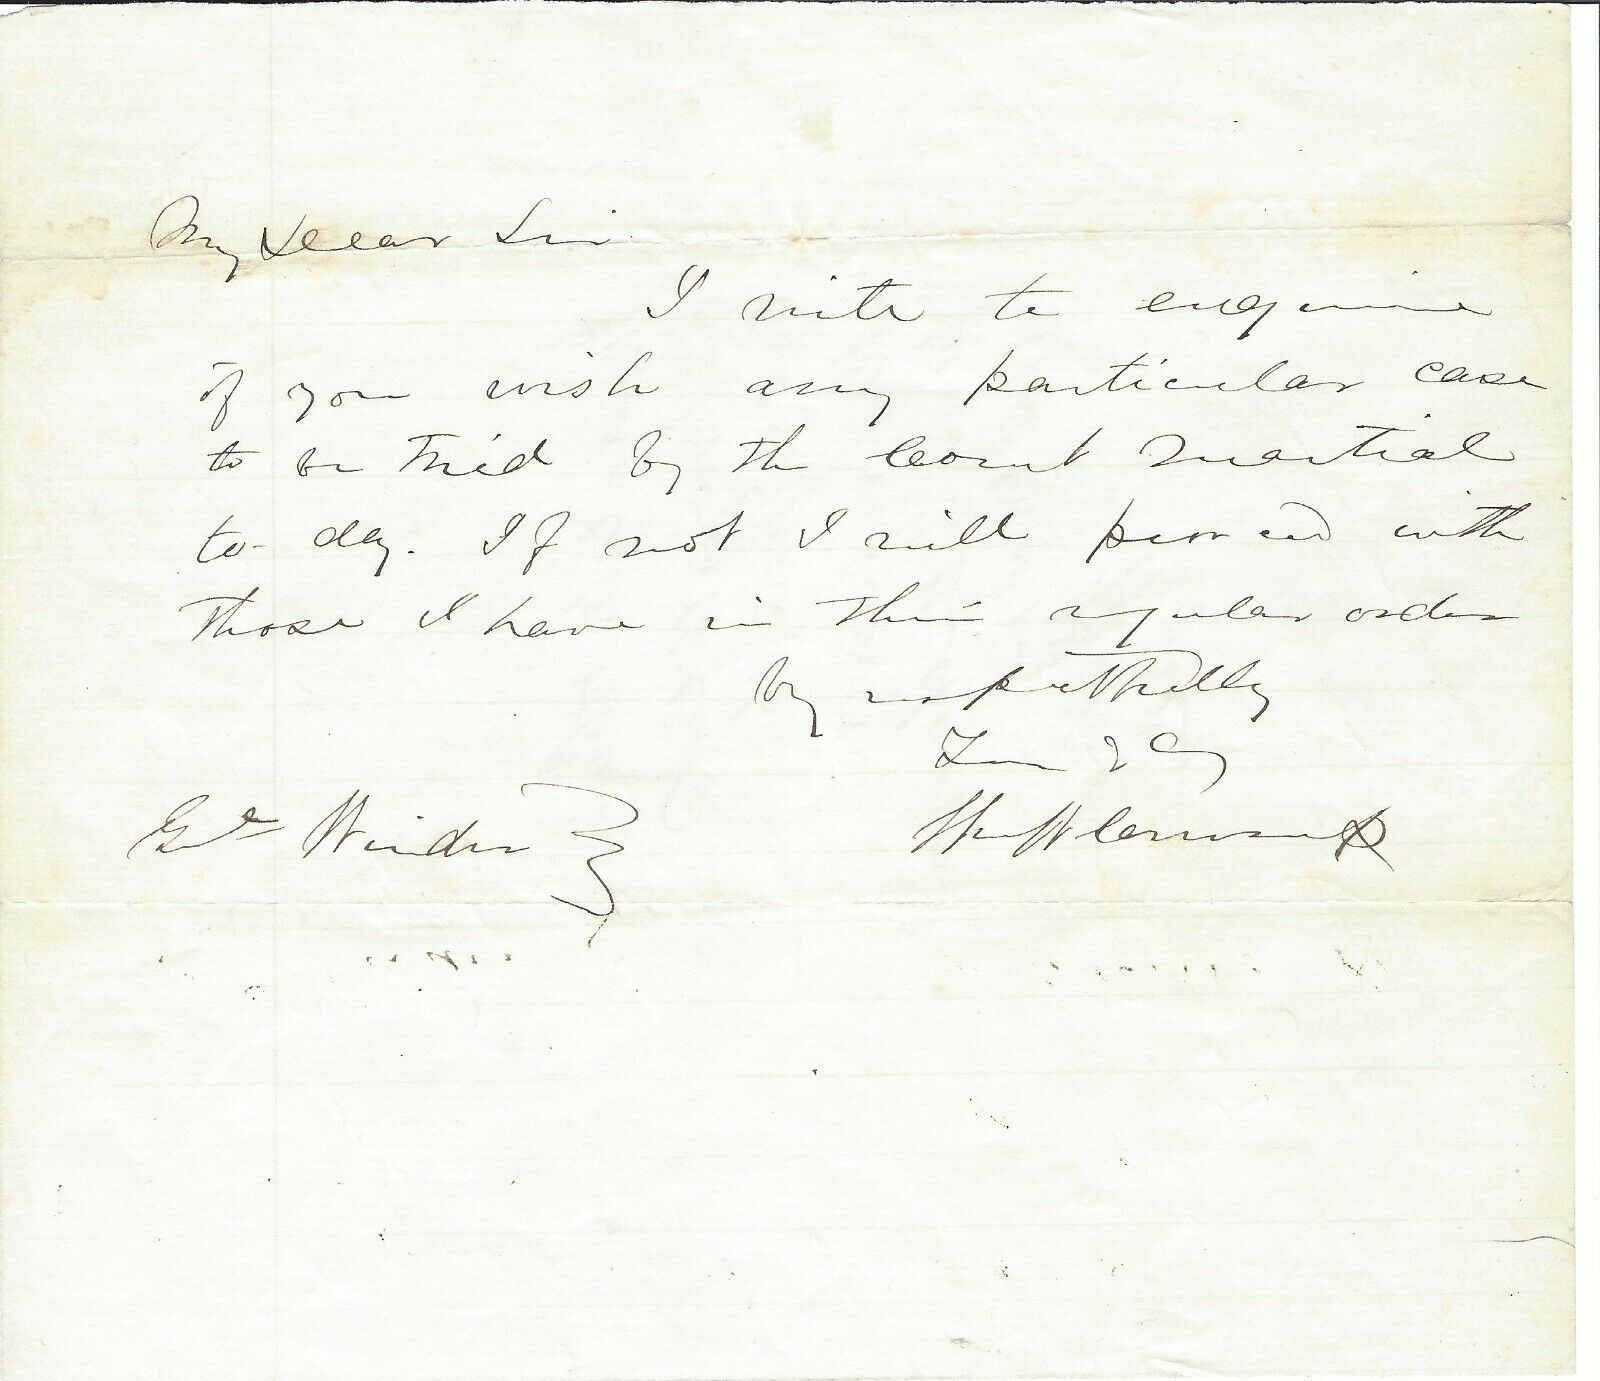 My Dear Sir
I write to enquire
if you wish any particular case
to be tried by the Court Martial
to-day. If not I will proceed with
those I have in their regular order
Very respectfully
Genl Winder